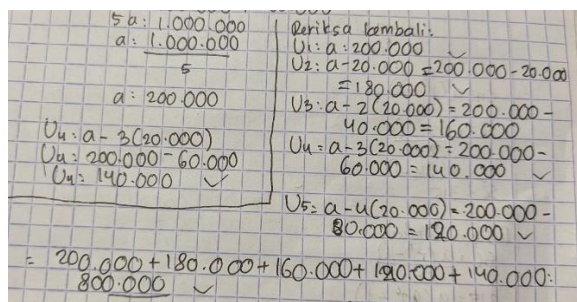 5a: 1.000.000
a: 1.000.000
5
a: 200.000
U4: a - 3(20.000)
U4: 200.000 - 60.000
U4: 140.000 ✓
Periksa kembali:
U1: a: 200.000 ✓
U2: a-20.000 = 200.000 - 20.000
= 180.000 ✓
U3: a-2(20.000) = 200.000 -
40.000 = 160.000
U4: a-3(20.000) = 200.000 -
60.000 = 140.000 ✓
U5: a-4(20.000) = 200.000 -
80.000 = 120.000 ✓
= 200.000 + 180.000 + 160.000 + 120.000 + 140.000:
800.000 ✓